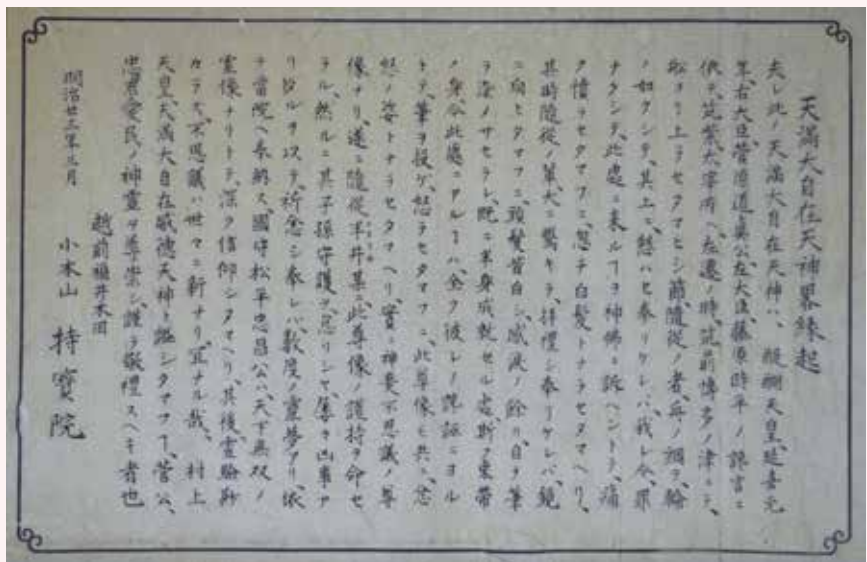 天満大自在天神畧縁起
夫レ此ノ天満大自在天神ハ、醍醐天皇、延喜元
年、右大臣菅原道真公、左大臣、藤原時平ノ讒言ニ
依テ、筑紫太宰府ヘ、左遷ノ時、筑前博多ノ津ニテ、
船ヨリ上ラセタマヒシ節、随従ノ者、舟ノ綱ヲ、輪
ノ如クシテ、其上ニ、憩ハセ奉リケレバ、我レ今、罪
ナクシテ、此處ニ来ルヿヲ神佛ニ訴ヘントテ、痛
ク憤ラセタマフニ、忽チ白髪トナラセタマヘリ、
其時随従ノ輩、大ニ驚キテ、拝禮シ奉リケレバ、鏡
ニ向セタマフニ、頭髪皆白シ、感涙ノ餘リ、自ラ筆
ヲ染メサセラレ、既ニ半身成就セル處、斯ク束帯
ノ身、今此處ニアルハ、全ク彼レノ讒誣ニヨル
トテ、筆ヲ投ゲ、怒ラセタマフニ、此尊像モ共ニ、忿
怒ノ姿トナラセタマヘリ、實ニ神変不思議ノ尊
像ナリ、遂ニ随従半井某ニ、此尊像ノ護持ヲ命セ
ラル、然ルニ其子孫守護ヲ、怠リシヤ、屡々凶事ア
リ、依
テ當院ヘ奉納ス、國守松平忠昌公ハ、天下無双ノ
霊像ナリトテ、深ク信仰シタマヘリ、其後、霊驗
カラス、不思議ハ世々ニ新ナリ、宜ナル哉、村上
天皇、天満大自在威徳天神ト謚シタマフヿ、菅公、
忠君愛民ノ神霊ヲ尊崇シ、謹テ敬禮スヘキ者也
越前福井木田
明治廿三年三月 小木山 持寳院